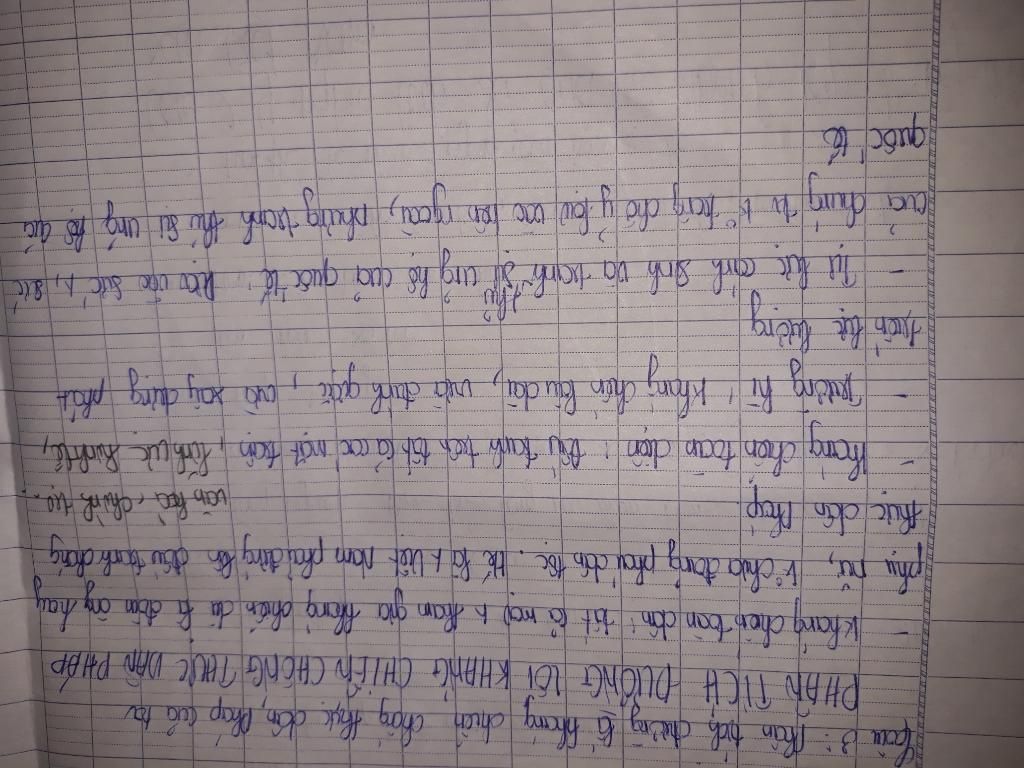 Câu 3: Phân tích đường lối kháng chiến chống thực dân Pháp của ta
PHÂN TÍCH ĐƯỜNG LỐI KHÁNG CHIẾN CHỐNG THỰC DÂN PHÁP
- Kháng chiến toàn dân: tất cả mọi tham gia kháng chiến dù là đàn ông hay
phụ nữ, chia đảng phái dân tộc. Hễ là Việt Nam phải đứng lên đấu tranh chống
thực dân Pháp.
- Kháng chiến toàn diện: Đấu tranh trên tất cả các mặt trận, lĩnh vực kinh tế,
văn hoá, chính trị...
- Trường kì: kháng chiến lâu dài, vừa đánh giặc, vừa xây dựng phát
triển lực lượng
- Tự lực cánh sinh và tranh thủ sự ủng hộ của quốc tế: dựa vào sức, sức
của chúng ta trông chờ ỷ lại vào bên ngoài, nhưng tranh thủ sự ủng hộ của
quốc tế